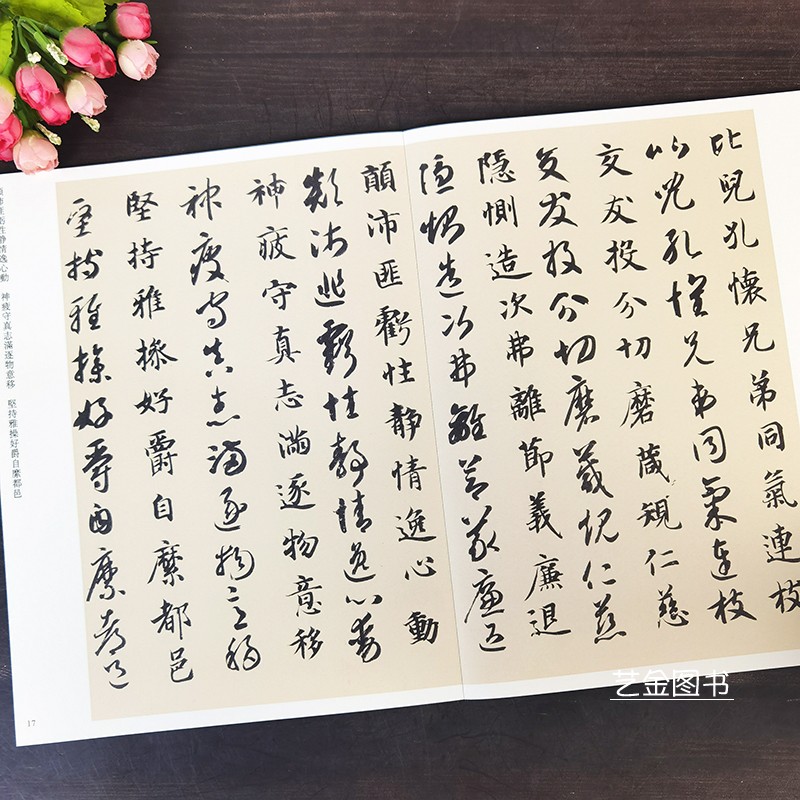 比兒孔懷兄弟同氣連枝
比兒孔懷兄弟同氣連枝
交友投分切磨箴規仁慈
交友投分切磨箴規仁慈
隱惻造次弗離節義廉退
隱惻造次弗離節義廉退
顛沛匪虧性靜情逸心動
顛沛匪虧性靜情逸心動
神疲守真志滿逐物意移
神疲守真志滿逐物意移
堅持雅操好爵自縻都邑
堅持雅操好爵自縻都邑
顛沛匪虧性静情逸心動　神疲守真志滿逐物意移　堅持雅操好爵自縻都邑
17
艺金图书